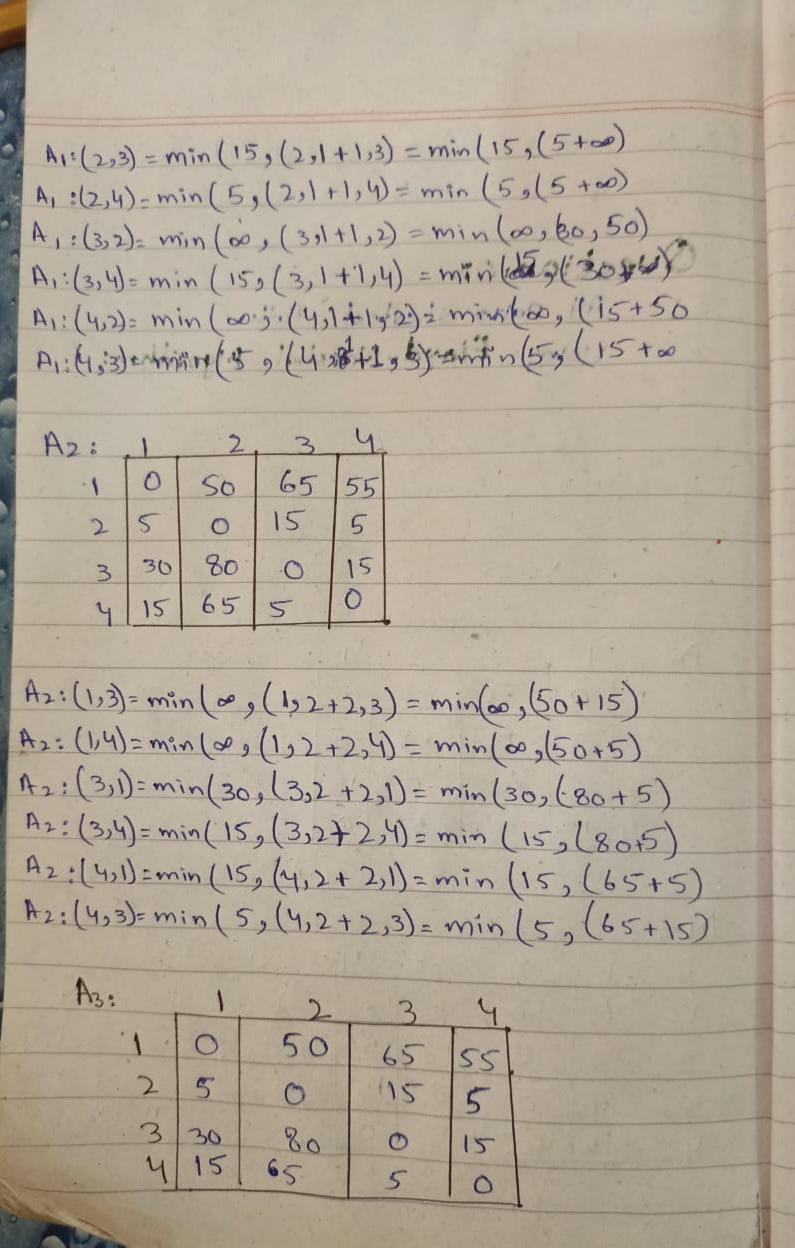 A1:(2,3) = min(15,(2,1+1,3) = min(15,(5+∞)
A1:(2,4) = min(5,(2,1+1,4) = min(5,(5+∞)
A1:(3,2) = min(∞,(3,1+1,2) = min(∞,30,50)
A1:(3,4) = min(15,(3,1+1,4) = min(15,(30+
A1:(4,2) = min(∞,(4,1+1,2) = min(∞,(15+50
A1:(4,3) = min(5,(4, +1,3) = min(5,(15+∞
A2: 1 2 3 4
1 0 50 65 55
2 5 0 15 5
3 30 80 0 15
4 15 65 5 0
A2:(1,3) = min(∞,(1,2+2,3) = min(∞,(50+15)
A2:(1,4) = min(∞,(1,2+2,4) = min(∞,(50+5)
A2:(3,1) = min(30,(3,2+2,1) = min(30,(80+5)
A2:(3,4) = min(15,(3,2+2,4) = min(15,(80+5)
A2:(4,1) = min(15,(4,2+2,1) = min(15,(65+5)
A2:(4,3) = min(5,(4,2+2,3) = min(5,(65+15)
A3: 1 2 3 4
1 0 50 65 55
2 5 0 15 5
3 30 80 0 15
4 15 65 5 0